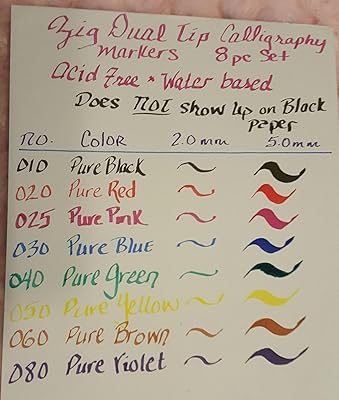 Zig Dual Tip Calligraphy
markers 8pc Set
Acid Free * Water based
Does NOT show up on Black
paper
NO. Color 2.0mm 5.0mm
010 Pure Black
020 Pure Red
025 Pure Pink
030 Pure Blue
040 Pure Green
050 Pure Yellow
060 Pure Brown
080 Pure Violet